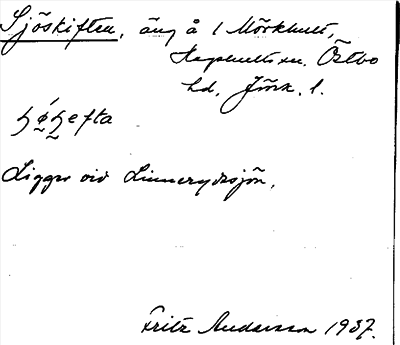 Sjöskiften, äng å 1 Mörkhult,
Kephults sn. Östbo
hd, Jönk. l.
Ligger vid Linnerydssjön.
Fritz Andersson 1937.